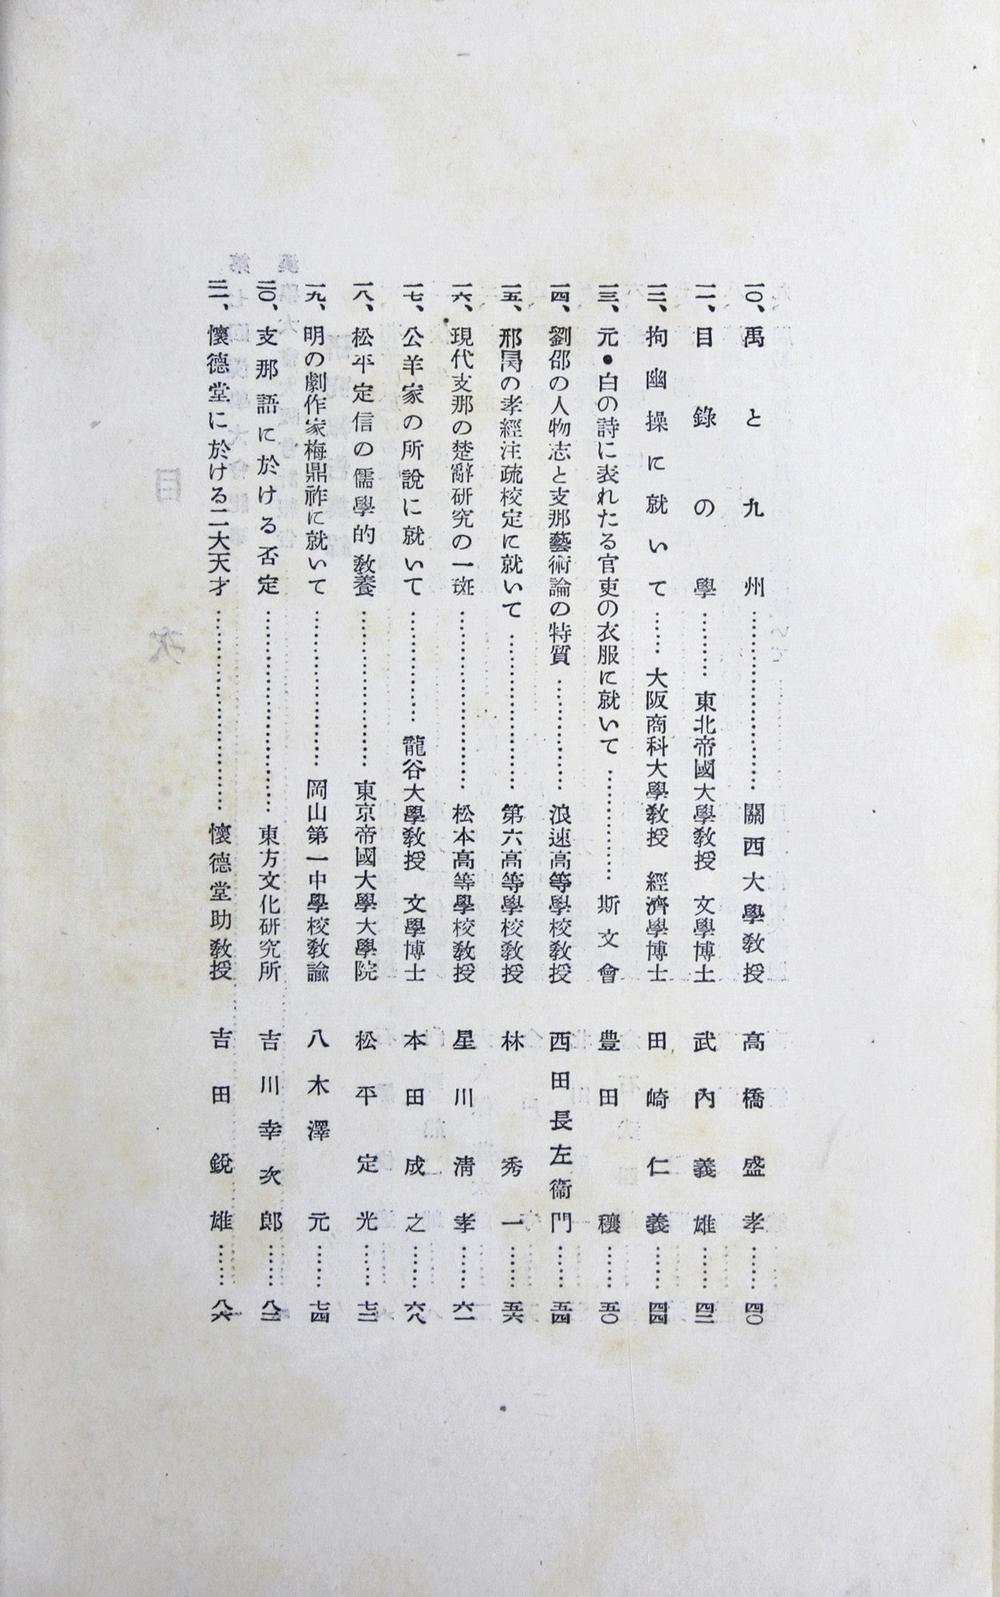 一〇、禹と九州……………………關西大學教授 高橋盛孝……四〇
一一、目錄の學………東北帝國大學教授 文學博士 武內義雄……四二
一二、拘幽操に就いて……大阪商科大學教授 經濟學博士 田崎仁義……四四
一三、元・白の詩に表れたる官吏の衣服に就いて……………斯文會 豊田穰……五〇
一四、劉邵の人物志と支那藝術論の特質……………浪速高等學校教授 西田長左衞門……五四
一五、邢昺の孝經注疏校定に就いて…………………第六高等學校教授 林秀一……五六
一六、現代支那の楚辭研究の一斑……………………松本高等學校教授 星川淸孝……六一
一七、公羊家の所說に就いて……………龍谷大學教授 文學博士 本田成之……六八
一八、松平定信の儒學的教養…………………東京帝國大學大學院 松平定光……七二
一九、明の劇作家梅鼎祚に就いて…………………岡山第一中學校教諭 八木澤元……七四
二〇、支那語に於ける否定………………………東方文化研究所 吉川幸次郎……八二
二一、懷德堂に於ける二大天才………………………懷德堂助教授 吉田銳雄……八六